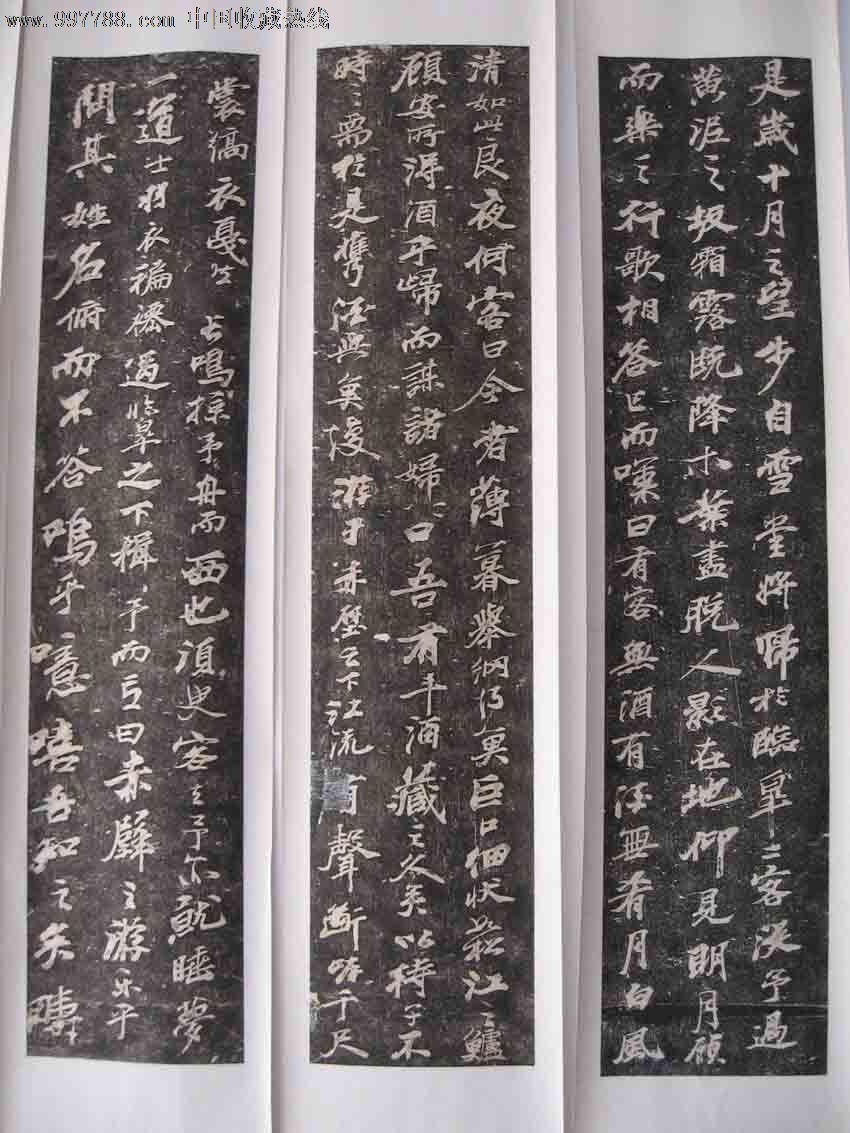 www.997788.com 中国收藏热线
是歲十月之望步自雪堂將歸於臨皋二客從予過
黄泥之坂霜露既降木葉盡脱人影在地仰見明月顧
而樂之行歌相答已而嘆曰有客無酒有酒無肴月白風
清如此良夜何客曰今者薄暮舉網得魚巨口細狀菘江之鱸
顧安所得酒乎歸而謀諸婦〻曰吾有斗酒藏之久矣以待子不
時之需於是攜酒與魚復游于赤壁之下江流有聲斷岸千尺
裳縞衣戛然長鳴掠予舟而西也須臾客去予亦就睡夢
一道士羽衣蹁躚過臨皋之下揖予而言曰赤壁之游樂乎
問其姓名俯而不答嗚乎噫嘻吾知之矣疇